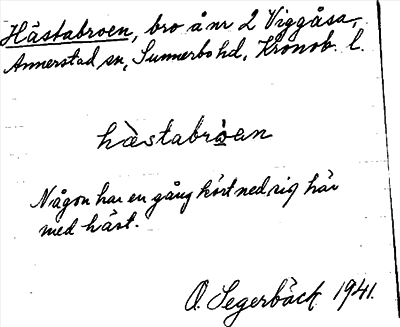 Hästabroen, bro å nr 2 Viggåsa,
Annerstad sn, Sunnerbo hd, Kronob. l.
hästabròen
Någon har en gång kört ned sig här
med häst.
O. Segerbäck 1941.